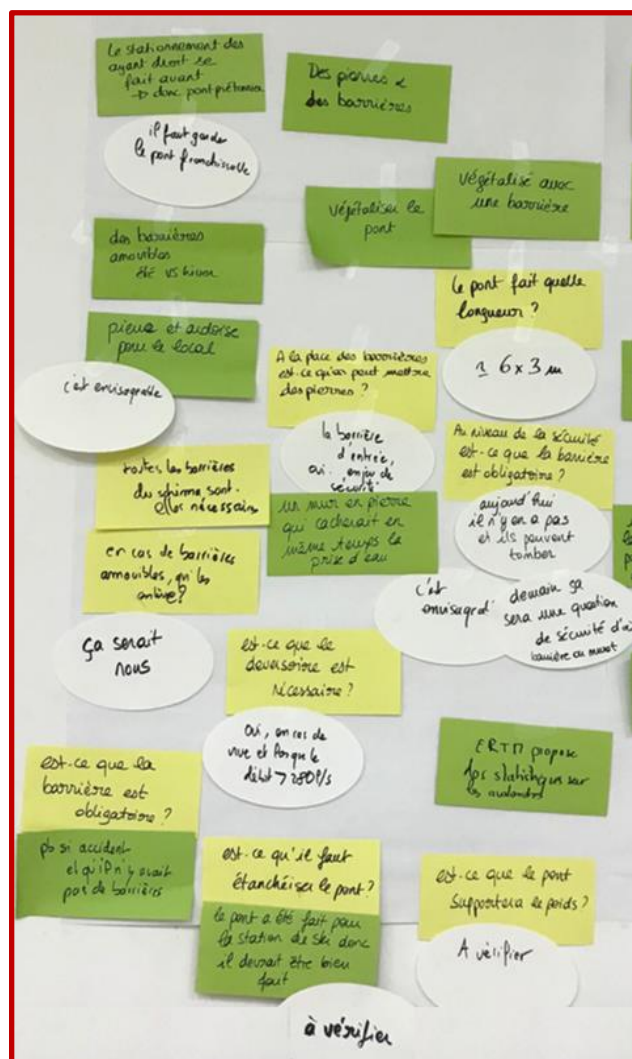 Le stationnement des
ayant droit se
fait avant
→ donc pont piétonnier
il faut garder
le pont franchissable
Des pierres &
des barrières
végétaliser le
pont
végétalisé avec
une barrière
des barrières
amovibles
été vs hiver
le pont fait quelle
longueur ?
≃ 6 x 3 m
pierre et ardoise
pour le local
c'est envisageable
A la place des barrières
est-ce qu'on peut mettre
des pierres ?
la barrière
d'entrée,
oui. enjeu de
sécurité
Au niveau de la sécurité
est-ce que la barrière
est obligatoire ?
aujourd'hui
il n'y en a pas
et ils peuvent
tomber
toutes les barrières
du schéma sont-
elles nécessaires
un mur en pierre
qui cacherait en
même temps la
prise d'eau
c'est
envisageable
demain ça
sera une question
de sécurité
barrière ou muret
en cas de barrières
amovibles, qui les
enlève?
ça serait
nous
est-ce que le
deversoire est
nécessaire ?
oui, en cas de
crue et lorsque le
débit > 280 l/s
propose
des statistiques sur
les avalanches
est-ce que la
barrière est
obligatoire ?
pb si accident
et qu'il n'y avait
pas de barrières
est-ce qu'il faut
étanchéiser le pont ?
le pont a été fait pour
la station de ski donc
il devrait être bien
fait
à vérifier
est-ce que le pont
supportera le poids ?
A vérifier